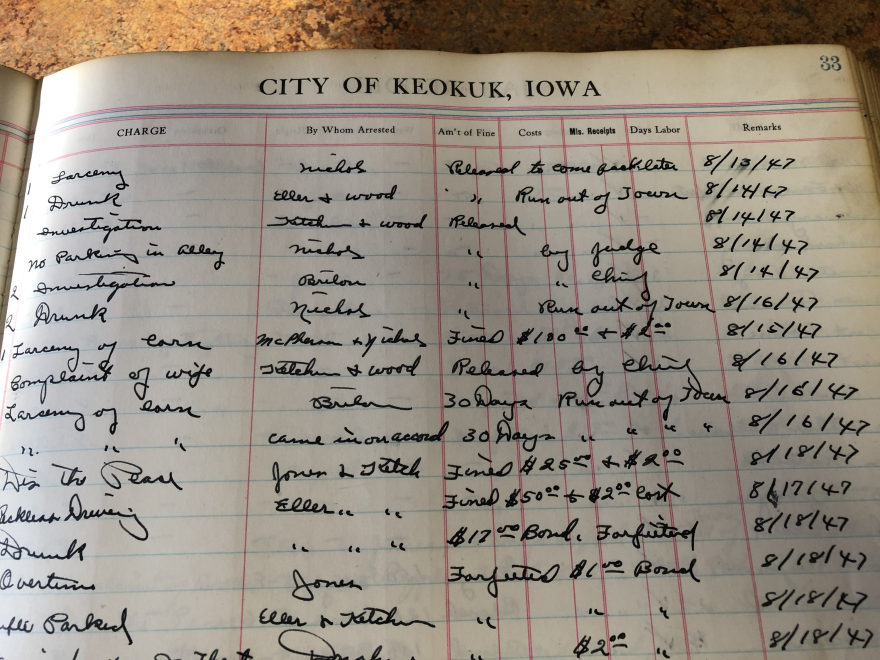 33
CITY OF KEOKUK, IOWA
CHARGE By Whom Arrested Am't of Fine Costs Mis. Receipts Days Labor Remarks
Larceny Nichols Released to come back later 8/13/47
Drunk Eller & Wood " Run out of Town 8/14/47
Investigation Ketchum & Wood Released 8/14/47
No Parking in Alley Nichols " by Judge 8/14/47
Investigation " " 8/14/47
Drunk Nichols " Run out of Town 8/16/47
Larceny of & Nichols Fined $100 00 & $2 00 8/15/47
Complaint of wife Ketchum & Wood Released by 8/16/47
Larceny of 30 Days Run out of Town 8/16/47
" " " came in on accord 30 Days " " " 8/16/47
Dis the Peace Jones & Ketch Fined $25 00 & $2 00 8/18/47
Reckless Driving Eller " " Fined $50 00 & $2 00 Cost 8/17/47
Drunk " " " $17 00 Bond. Forfieted 8/18/47
Overtime Jones Forfieted $1 00 Bond 8/18/47
Parked Eller & Ketchum " " " 8/18/47
$2 00 " 8/18/47